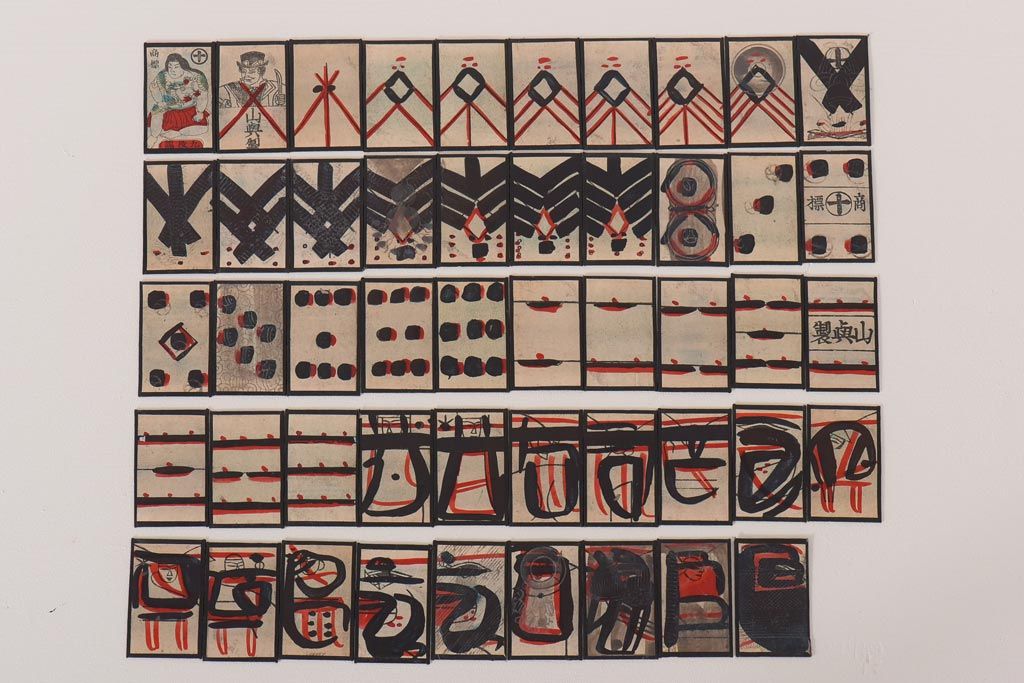 商標
山與製
商標
山與製